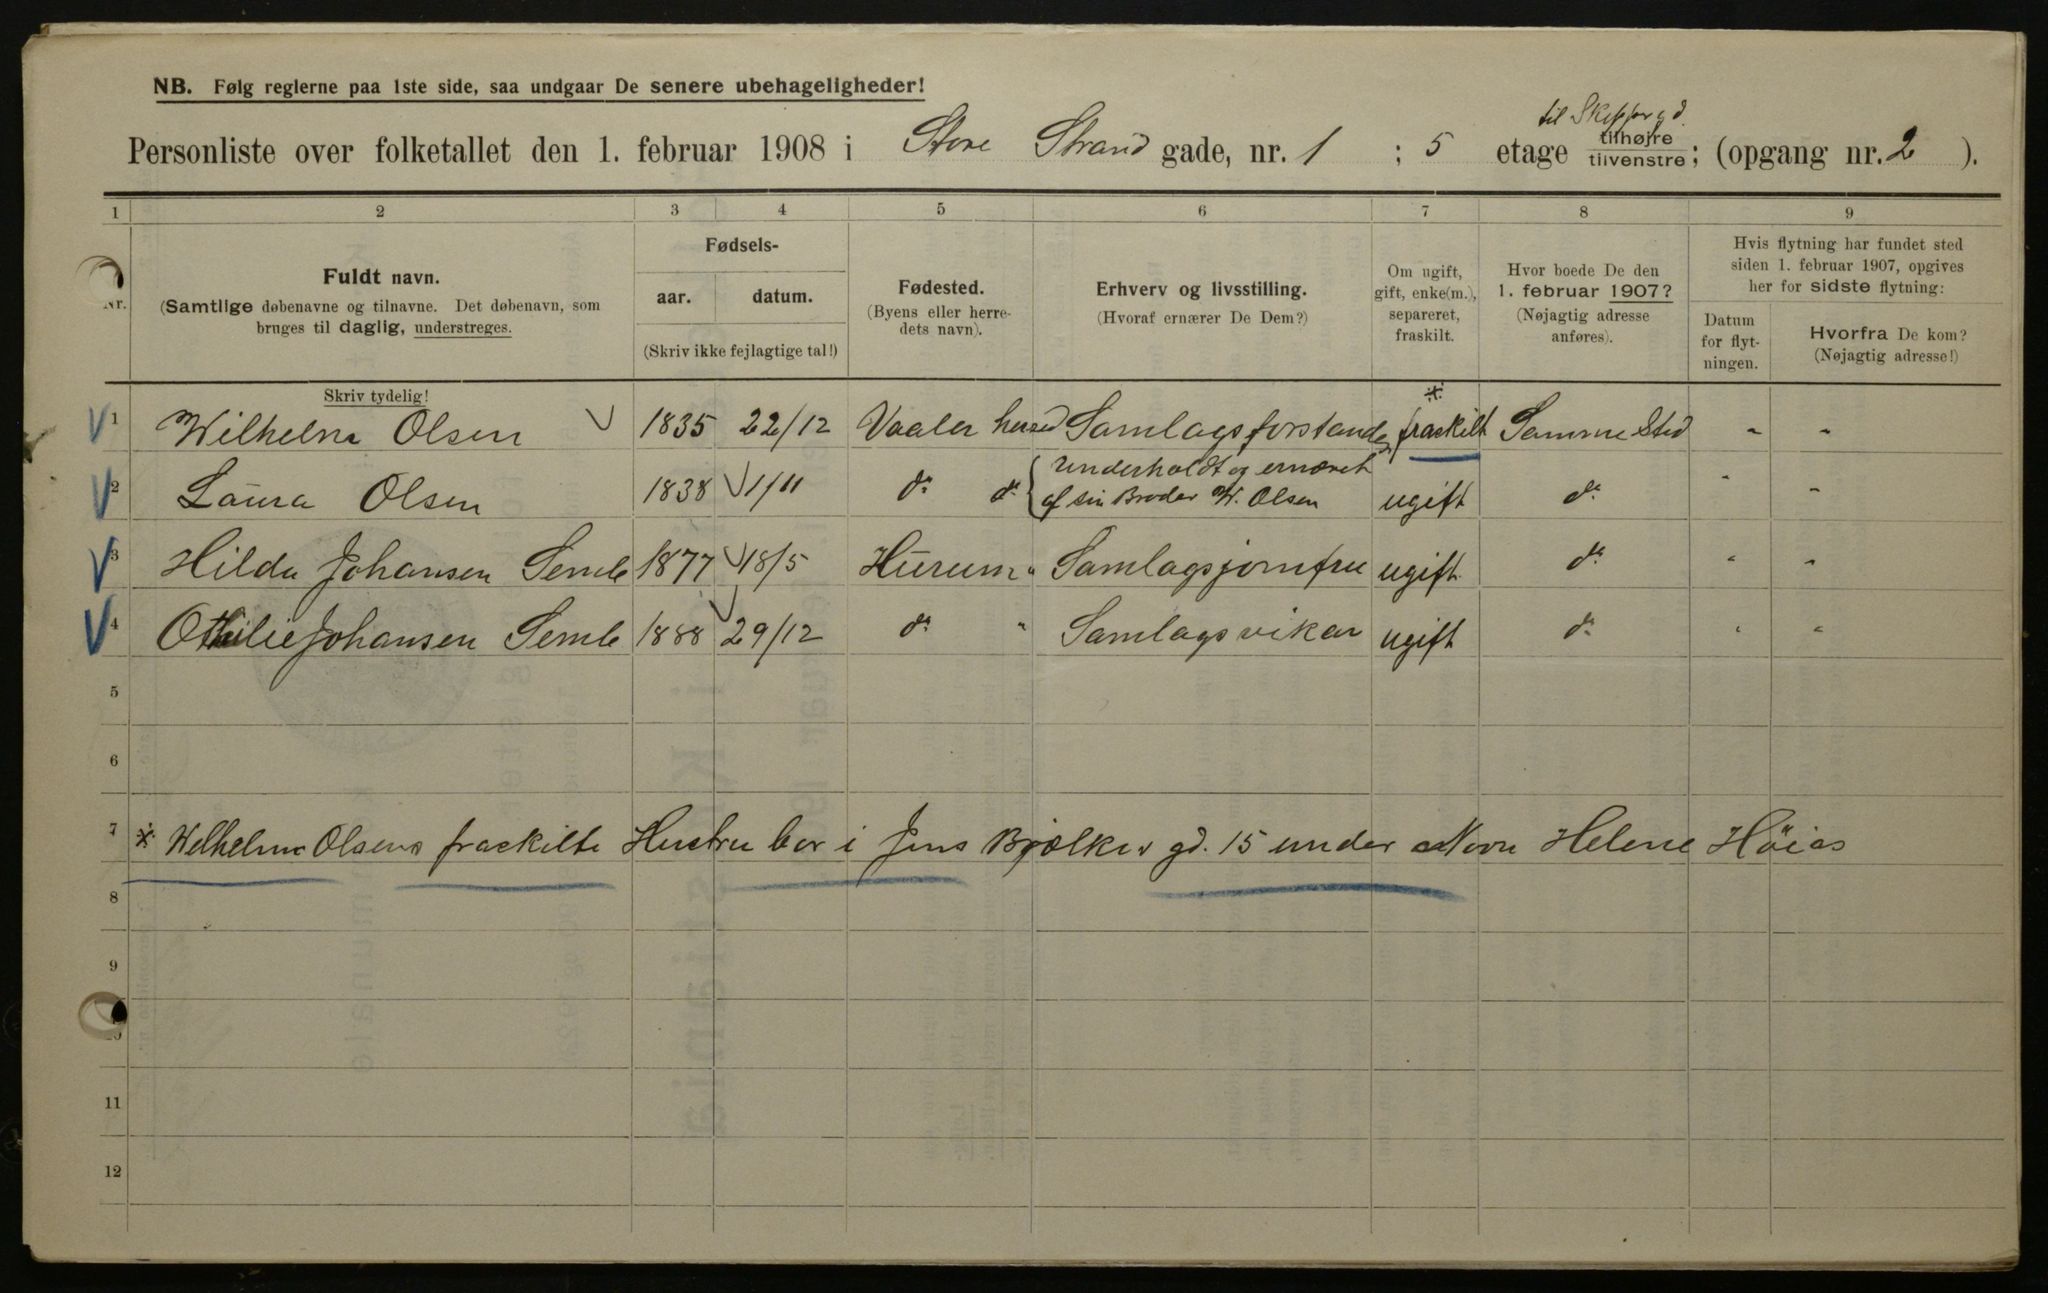 NB. Følg reglerne paa 1ste side, saa undgaar De senere ubehageligheder!
til Skippergd.
Personliste over folketallet den 1. februar 1908 i Store Strand gade, nr. 1 ; 5 etage tilhøjre tilvenstre; (opgang nr. 2 ).
1 2 3 4 5 6 7 8 9
Nr.
Fuldt navn.
(Samtlige døbenavne og tilnavne. Det døbenavn, som
bruges til daglig, understreges.
Skriv tydelig!
Fødsels-
aar. datum.
(Skriv ikke fejlagtige tal!)
Fødested.
(Byens eller herre-
dets navn).
Erhverv og livsstilling.
(Hvoraf ernærer De Dem?)
Om ugift,
gift, enke(m.),
separeret,
fraskilt.
Hvor boede De den
1. februar 1907?
(Nøjagtig adresse
anføres).
Hvis flytning har fundet sted
siden 1. februar 1907, opgives
her for sidste flytning:
Datum
for flyt-
ningen.
Hvorfra De kom?
(Nøjagtig adresse!)
1 Wilhelm Olsen 1835 22/12 Vaaler hersed Samlagsforstander fraskilt * Samme Sted " "
2 Laura Olsen 1838 1/11 do do { Underholdt og ernæret
af sin Broder W. Olsen ugift do " "
3 Hilda Johansen Semb 1877 18/5 Hurum " Samlagsjomfru ugift do " "
4 Othilie Johansen Semb 1888 29/12 do " Samlagsvikar ugift do " "
5
6
7 * Wilhelm Olsens fraskilte Hustru bor i Jens Bjelkes gd. 15 under Navn Helene Höiås
8
9
10
11
12